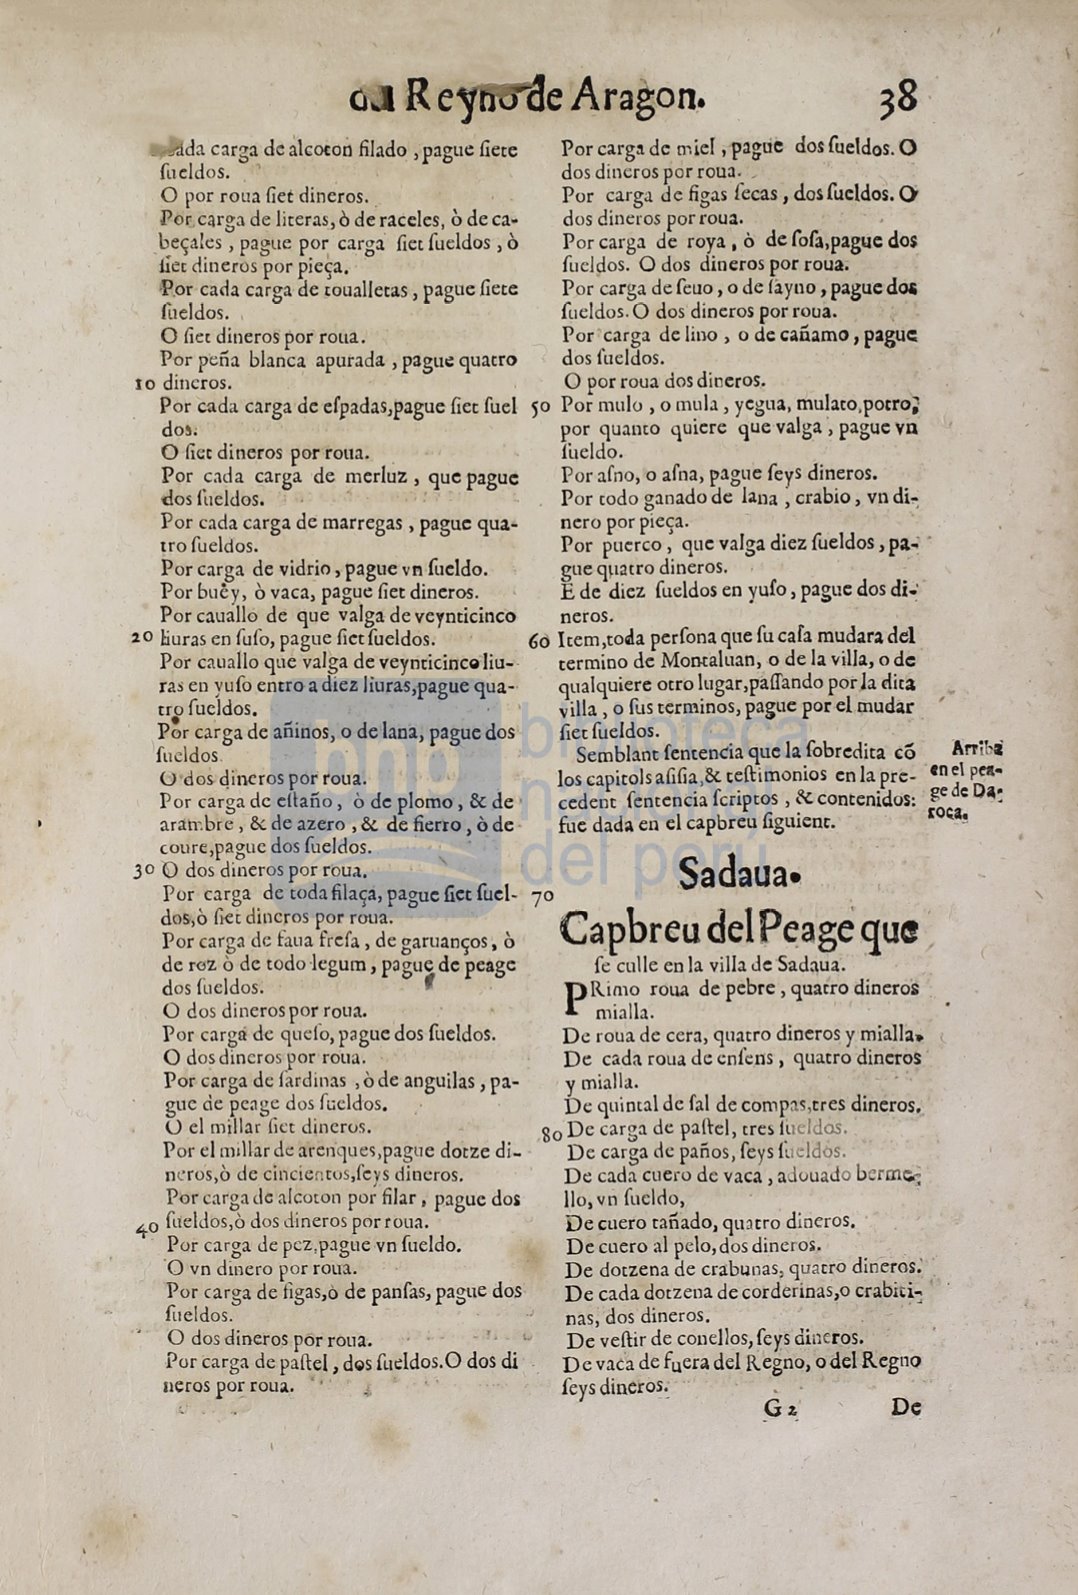 Reyno de Aragon. 38
carga de alcoton filado , pague ſiete
ſueldos.
O por roua ſiet dineros.
Por carga de literas, ò de raceles, ò de ca-
beçales , pague por carga ſiet ſueldos , ò
ſiet dineros por pieça.
Por cada carga de toualletas , pague ſiete
ſueldos.
O ſiet dineros por roua.
Por peña blanca apurada , pague quatro
10 dineros.
Por cada carga de eſpadas,pague ſiet ſuel
dos.
O ſiet dineros por roua.
Por cada carga de merluz , que pague
dos ſueldos.
Por cada carga de marregas , pague qua-
tro ſueldos.
Por carga de vidrio, pague vn ſueldo.
Por buey, ò vaca, pague ſiet dineros.
Por cauallo de que valga de veynticinco
20 liuras en ſuſo, pague ſiet ſueldos.
Por cauallo que valga de veynticinco liu-
ras en yuſo entro a diez liuras,pague qua-
tro ſueldos.
Por carga de añinos, o de lana, pague dos
ſueldos
O dos dineros por roua.
Por carga de eſtaño , ò de plomo , & de
arambre , & de azero , & de fierro , ò de
coure,pague dos ſueldos.
30 O dos dineros por roua.
Por carga de toda filaça, pague ſiet ſuel-
dos,ò ſiet dineros por roua.
Por carga de faua freſa , de garuanços, ò
de roz o de todo legum , pague de peage
dos ſueldos.
O dos dineros por roua.
Por carga de queſo, pague dos ſueldos.
O dos dineros por roua.
Por carga de ſardinas , ò de anguilas , pa-
gue de peage dos ſueldos.
O el millar ſiet dineros.
Por el millar de arenques,pague dotze di-
neros,ò de cincientos,ſeys dineros.
Por carga de alcoton por filar , pague dos
40 ſueldos,ò dos dineros por roua.
Por carga de pez,pague vn ſueldo.
O vn dinero por roua.
Por carga de figas,ò de panſas, pague dos
ſueldos.
O dos dineros por roua.
Por carga de paſtel , dos ſueldos.O dos di
neros por roua.
Por carga de miel , pague dos ſueldos. O
dos dineros por roua.
Por carga de figas ſecas , dos ſueldos. O
dos dineros por roua.
Por carga de roya , ò de ſoſa,pague dos
ſueldos. O dos dineros por roua.
Por carga de ſeuo , o de ſayno , pague dos
ſueldos. O dos dineros por roua.
Por carga de lino , o de cañamo, pague
dos ſueldos.
O por roua dos dineros.
50 Por mulo , o mula , yegua, mulato,potro,
por quanto quiere que valga , pague vn
ſueldo.
Por aſno, o aſna, pague ſeys dineros.
Por todo ganado de lana , crabio, vn di-
nero por pieça.
Por puerco , que valga diez ſueldos , pa-
gue quatro dineros.
E de diez ſueldos en yuſo, pague dos di-
neros.
60 Item,toda perſona que ſu caſa mudara del
termino de Montaluan, o de la villa, o de
qualquiere otro lugar,paſſando por la dita
villa , o ſus terminos, pague por el mudar
ſiet ſueldos.
Semblant ſentencia que la ſobredita cõ
los capitols aſiſia,& teſtimonios en la pre-
cedent ſentencia ſcriptos , & contenidos:
fue dada en el capbreu ſiguient.
Arriba
en el pea-
ge de Da-
roca.
Sadaua.
70
Capbreu del Peage que
ſe culle en la villa de Sadaua.
PRimo roua de pebre , quatro dineros
mialla.
De roua de cera, quatro dineros y mialla.
De cada roua de enſens , quatro dineros
y mialla.
De quintal de ſal de compas,tres dineros.
80 De carga de paſtel, tres ſueldos.
De carga de paños, ſeys ſueldos.
De cada cuero de vaca , adouado berme-
llo, vn ſueldo,
De cuero tañado, quatro dineros.
De cuero al pelo, dos dineros.
De dotzena de crabunas, quatro dineros.
De cada dotzena de corderinas,o crabiti-
nas, dos dineros.
De veſtir de conellos, ſeys dineros.
De vaca de fuera del Regno, o del Regno
ſeys dineros.
G 2 De
bnp biblioteca
nacional
del perú